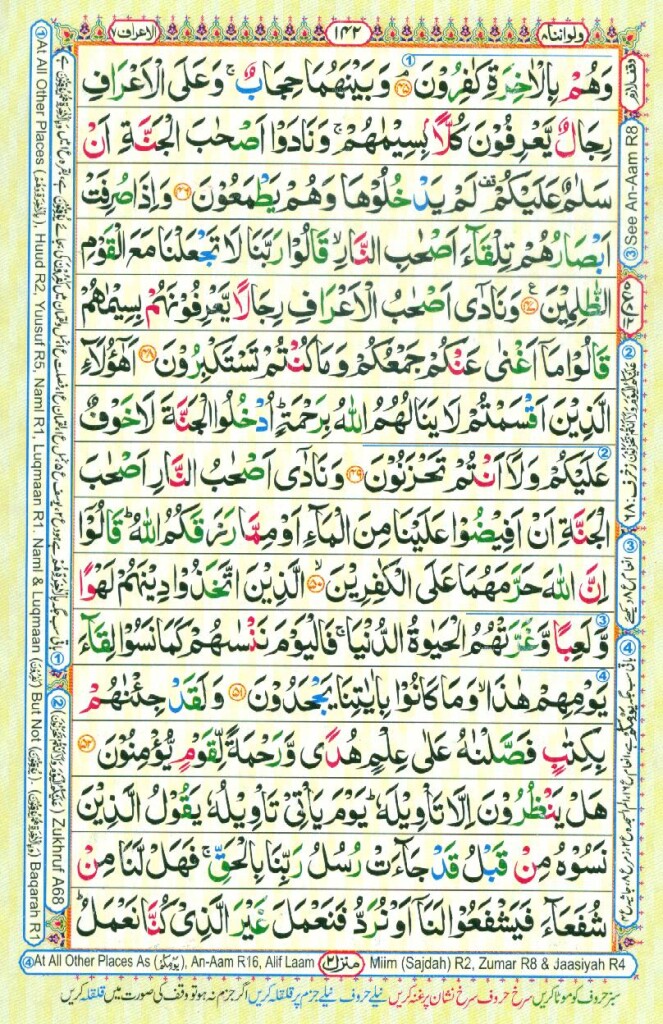 ولواننا ٨
١٤٢
الاعراف ٧
وَهُمْ بِالْاٰخِرَةِ كٰفِرُوْنَ ۘ﴿۴۵﴾ وَبَيْنَهُمَا حِجَابٌ ۚ وَعَلَى الْاَعْرَافِ
رِجَالٌ يَّعْرِفُوْنَ كُلًّا بِسِيْمٰىهُمْ ۚ وَنَادَوْا اَصْحٰبَ الْجَنَّةِ اَنْ
سَلٰمٌ عَلَيْكُمْ ۟ لَمْ يَدْخُلُوْهَا وَهُمْ يَطْمَعُوْنَ ﴿۴۶﴾ وَاِذَا صُرِفَتْ
اَبْصَارُهُمْ تِلْقَآءَ اَصْحٰبِ النَّارِ ۙ قَالُوْا رَبَّنَا لَا تَجْعَلْنَا مَعَ الْقَوْمِ
الظّٰلِمِيْنَ ﴿۴۷﴾ وَنَادٰٓى اَصْحٰبُ الْاَعْرَافِ رِجَالًا يَّعْرِفُوْنَهُمْ بِسِيْمٰىهُمْ
قَالُوْا مَاۤ اَغْنٰى عَنْكُمْ جَمْعُكُمْ وَمَا كُنْتُمْ تَسْتَكْبِرُوْنَ ﴿۴۸﴾ اَهٰۤؤُلَآءِ
الَّذِيْنَ اَقْسَمْتُمْ لَا يَنَالُهُمُ اللّٰهُ بِرَحْمَةٍ ؕ اُدْخُلُوا الْجَنَّةَ لَا خَوْفٌ
عَلَيْكُمْ وَلَاۤ اَنْتُمْ تَحْزَنُوْنَ ﴿۴۹﴾ وَنَادٰٓى اَصْحٰبُ النَّارِ اَصْحٰبَ
الْجَنَّةِ اَنْ اَفِيْضُوْا عَلَيْنَا مِنَ الْمَآءِ اَوْ مِمَّا رَزَقَكُمُ اللّٰهُ ؕ قَالُوْۤا
اِنَّ اللّٰهَ حَرَّمَهُمَا عَلَى الْكٰفِرِيْنَ ۙ﴿۵۰﴾ الَّذِيْنَ اتَّخَذُوْا دِيْنَهُمْ لَهْوًا
وَّلَعِبًا وَّغَرَّتْهُمُ الْحَيٰوةُ الدُّنْيَا ۚ فَالْيَوْمَ نَنْسٰىهُمْ كَمَا نَسُوْا لِقَآءَ
يَوْمِهِمْ هٰذَا ۙ وَمَا كَانُوْا بِاٰيٰتِنَا يَجْحَدُوْنَ ﴿۵۱﴾ وَلَقَدْ جِئْنٰهُمْ
بِكِتٰبٍ فَصَّلْنٰهُ عَلٰى عِلْمٍ هُدًى وَّرَحْمَةً لِّقَوْمٍ يُّؤْمِنُوْنَ ﴿۵۲﴾
هَلْ يَنْظُرُوْنَ اِلَّا تَاْوِيْلَهٗ ؕ يَوْمَ يَاْتِيْ تَاْوِيْلُهٗ يَقُوْلُ الَّذِيْنَ
نَسُوْهُ مِنْ قَبْلُ قَدْ جَآءَتْ رُسُلُ رَبِّنَا بِالْحَقِّ ۚ فَهَلْ لَّنَا مِنْ
شُفَعَآءَ فَيَشْفَعُوْا لَنَاۤ اَوْ نُرَدُّ فَنَعْمَلَ غَيْرَ الَّذِيْ كُنَّا نَعْمَلُ ؕ
وقف لازم
③ See An-Aam R8
② عَلَيْكُمُ الْيَوْمَ وَلَا اَنْتُمْ تَحْزَنُوْنَ زخرف: ٦٨
① At All Other Places (بِالْاٰخِرَةِ هُمْ), Huud R2, Yuusuf R5, Naml R1, Luqmaan R1, Naml & Luqmaan (يُوْقِنُوْنَ) But Not (يُوْقِنُوْنَ), (وَبِالْاٰخِرَةِ هُمْ يُوْقِنُوْنَ) Baqarah R1
② (عَلَيْكُمُ الْيَوْمَ وَلَا اَنْتُمْ تَحْزَنُوْنَ) Zukhruf A68
④ At All Other Places As (يَوْمِكُمْ), An-Aam R16, Alif Laam
منزل ٢
Miim (Sajdah) R2, Zumar R8 & Jaasiyah R4
سبز حروف کو موٹا کریں سرخ حروف سرخ نشان پر غنہ کریں نیلے حروف نیلے جزم پر قلقلہ کریں اگر جزم نہ ہو تو وقف کی صورت میں قلقلہ کریں